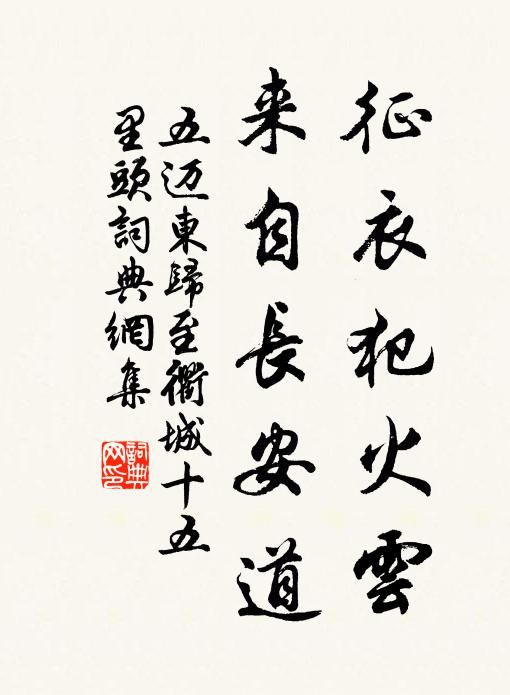 征衣犯火雲
来自長安道
五迈東歸至衢城十五
里頭詞典網集
詞典
网印